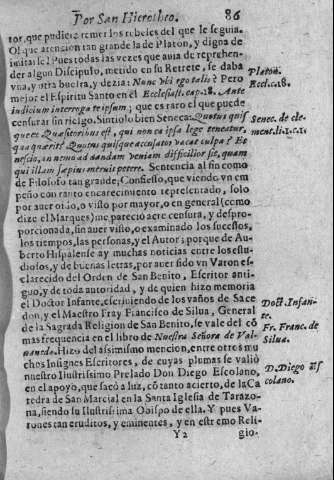 Por San Hierotheo. 86
tor, que pudiera temer los rubeles del que le seguia.
O! que atencion tan grande la de Platon, y digna de
imitarse! Pues todas las vezes que auia de reprehen-
der algun Discipulo, metido en su Retrete, se daba
vna, y otra buelta, y dezia: Nunc vbi ego talis? Pero
mejor el Espiritu Santo en el Ecclesiast. cap. 18. Ante
iudicium interroga te ipsum; que es raro el que puede
censurar sin riesgo. Sintiolo bien Seneca: Quotus quis
que ex Quæsitoribus est, qui non ea ipsa lege teneatur,
qua quærit? Quotus quisque accusator vacat culpa? Et
nescio, an nemo ad dandam veniam difficilior sit, quam
qui illam sæpius meruit petere. Sentencia al fin como
de Filosofo tan grande; Confiesso, que viendo vn em
peño con tanto encarecimiento representado, solo
por auer oido, o visto por mayor, o en general (como
dize el Marques) me pareciò acre censura, y despro-
porcionada, sin auer visto, o examinado los sucessos,
los tiempos, las personas, y el Autor; porque de Au-
berto Hispalense ay muchas noticias entre los estu-
diosos, y de buenas letras, por auer sido vn Varon es-
clarecido del Orden de San Benito, Escritor anti-
guo, y de toda autoridad, y de quien hizo memoria
el Doctor Infante, escriuiendo de los vaños de Sace
don, y el Maestro Fray Francisco de Silua, General
de la Sagrada Religion de San Benito, se vale del cõ
mas frequencia en el libro de Nuestra Señora de Val-
uanuda. Hizo del assimismo mencion, entre otros mu
chos Insignes Escritores, de cuyas plumas se valiò
nuestro Ilustrissimo Prelado Don Diego Escolano,
en el apoyo, que sacò a luz, cõ tanto acierto, de la Ca
tedra de San Marcial en la Santa Iglesia de Tarazo-
na, siendo su Ilustrissima Obispo de ella. Y pues Va-
rones tan eruditos, y eminentes, y en estremo Reli-
Y 2 gio-
Platon.
Eccl. c. 18.
Senec. de cle-
ment. li. 1. c. 21.
Doct. Infan-
te.
Fr. Franc. de
Silua.
D. Diego Es
colano.